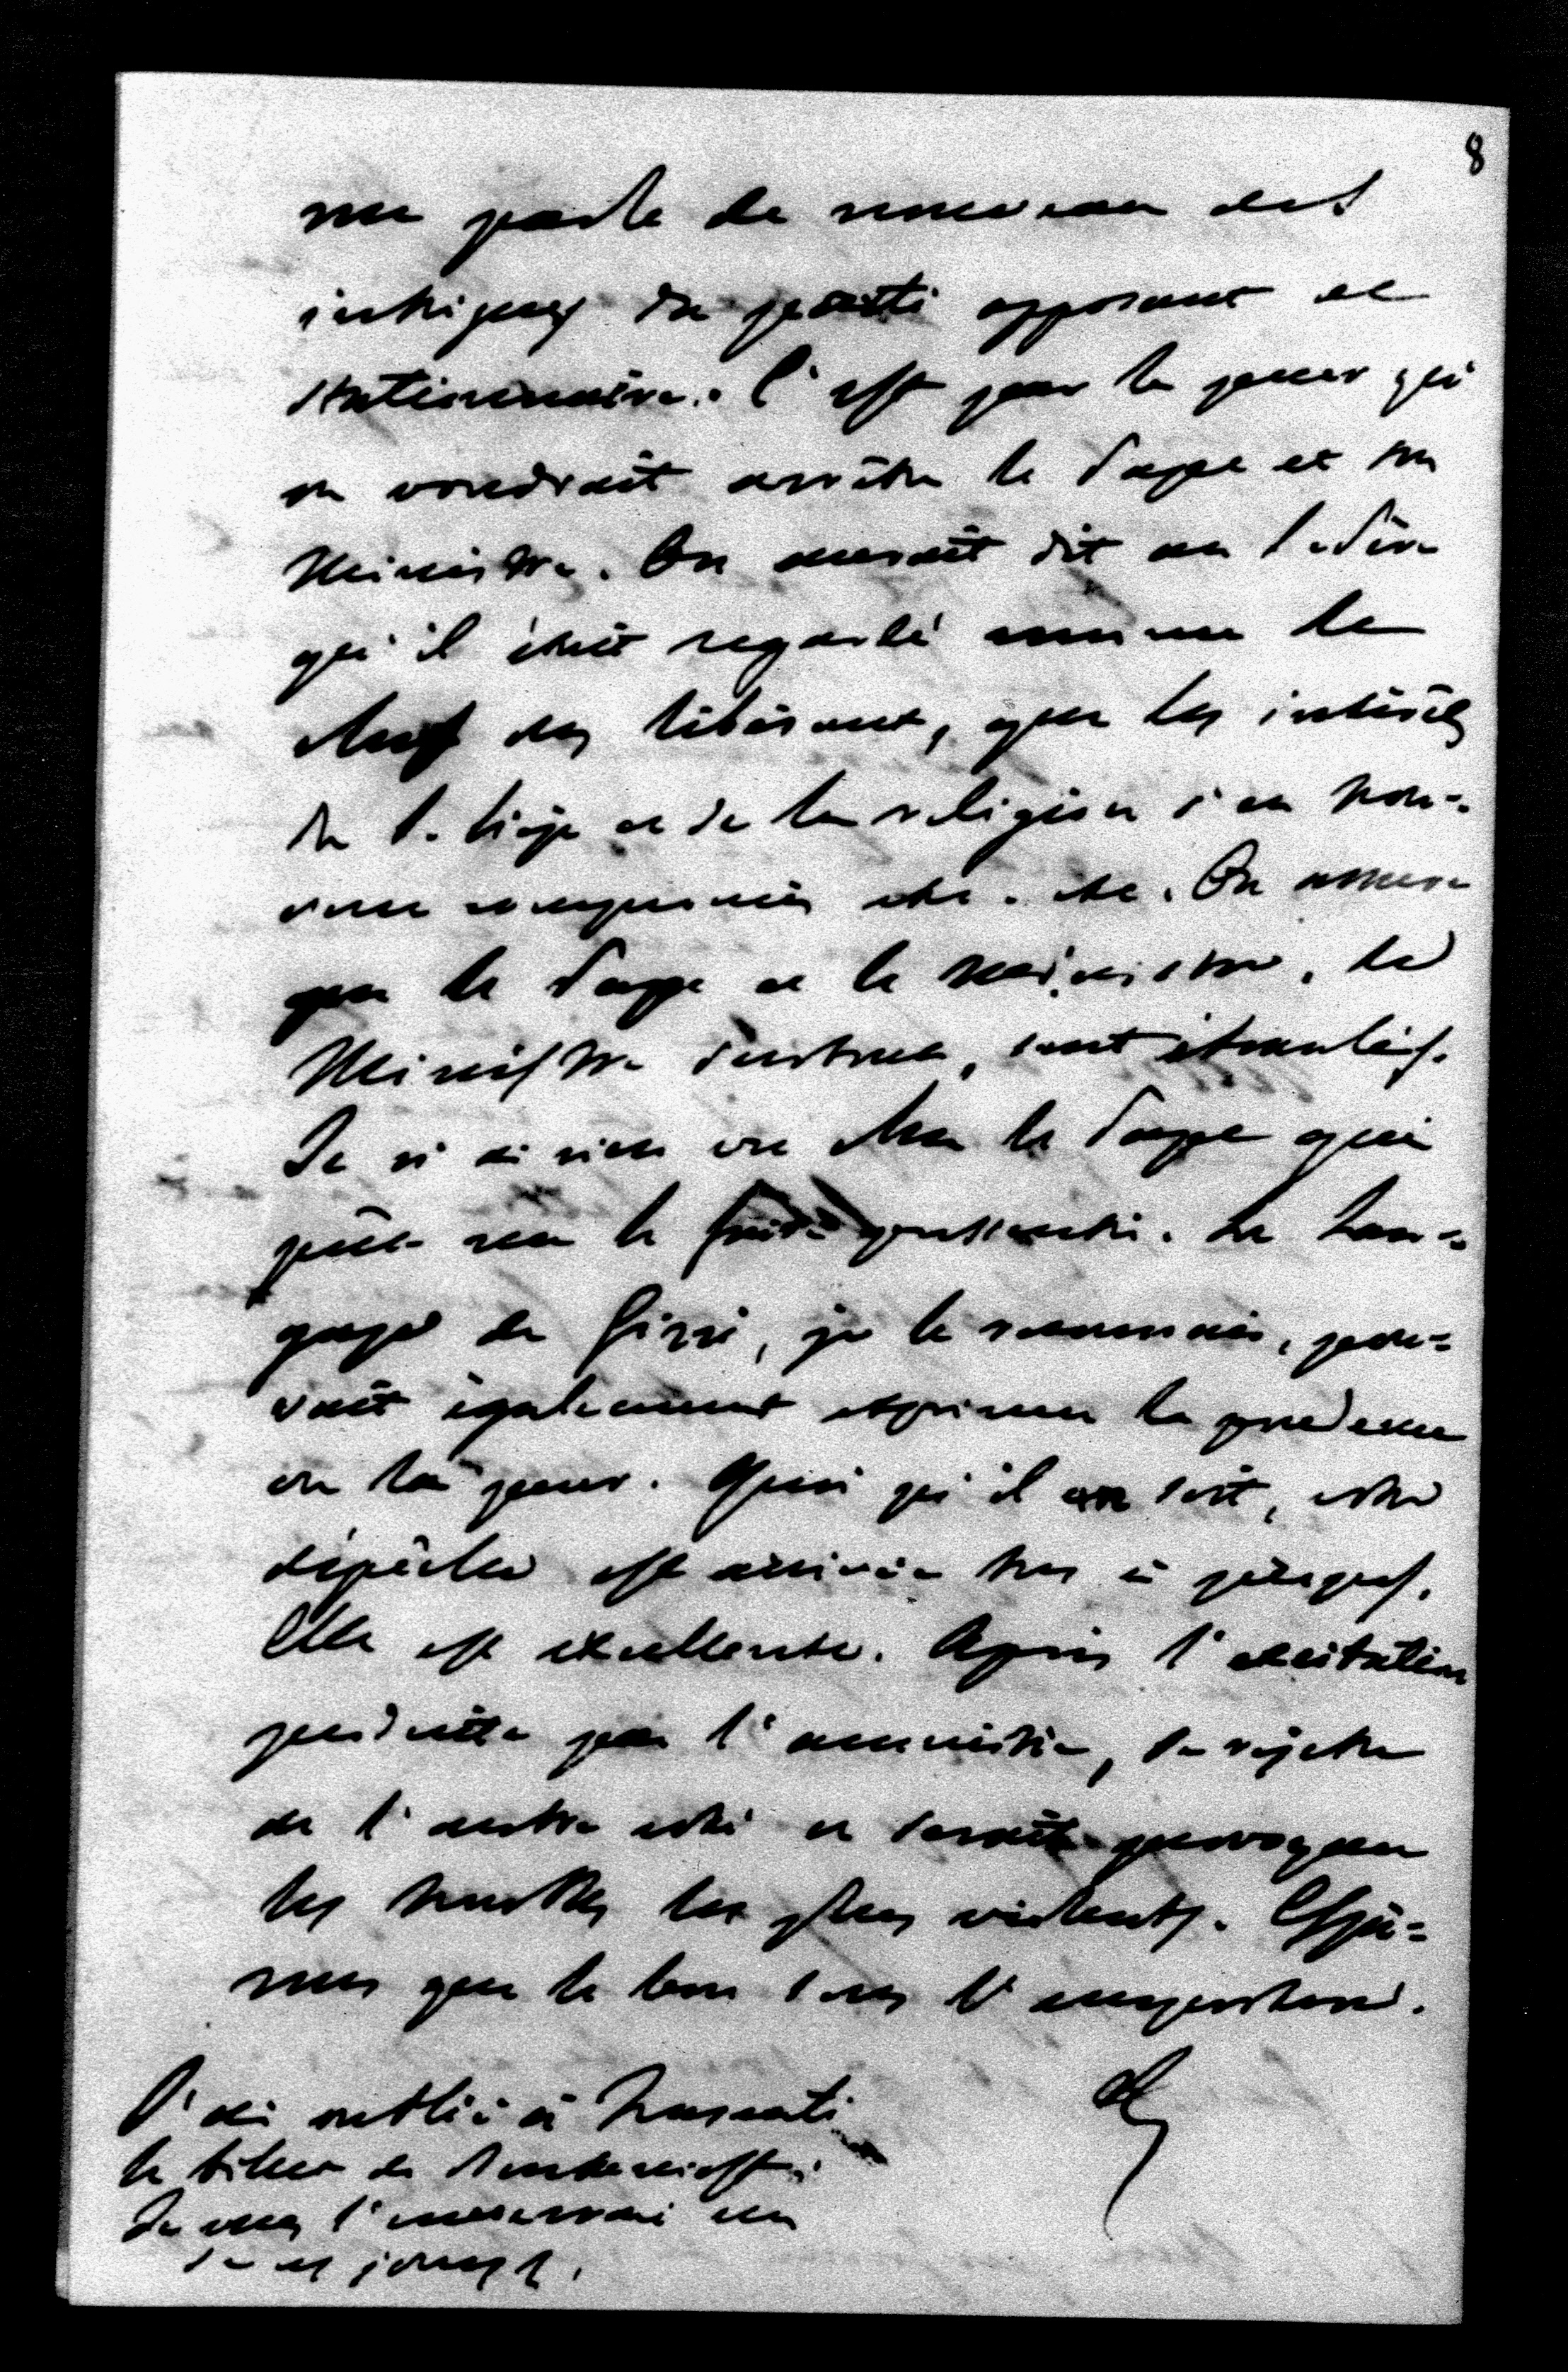 8
me parle de nouveau des
intrigues du parti opposant et
stationnaire. C'est par la peur qu'
on voudrait arrêter le Pape et son
Ministre. On aurait dit au St Père
qu'il était regardé comme le
chef des libéraux, que les intérêts
du St Siège et de la religion s'en trou=
vent compromis etc. etc. On assure
que le Pape et le ministre, le
Ministre surtout, sont ébranlés.
Je n'ai rien vu chez le Pape qui
pût me le faire pressentir. Le lan=
gage de Gizzi, je le reconnais, pou=
vait également exprimer la prudence
ou la peur. Quoi qu'il en soit, votre
dépêche est arrivée très à propos.
Elle est excellente. Après l'excitation
produite par l'amnistie, se rejeter
de l'autre côté ce serait provoquer
les troubles les plus violents. Espé=
rons que le bon sens l'emportera.
J'ai oublié à Frascati
le billet de
Je vous l'enverrai un
de ces jours.